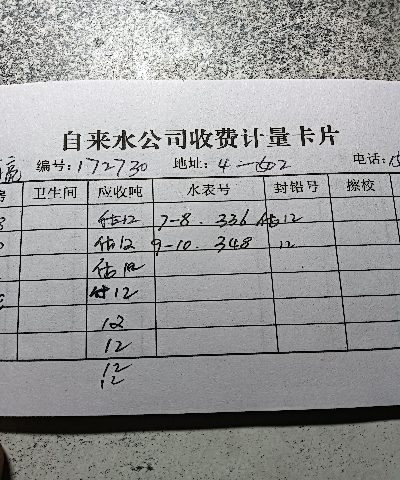 自来水公司收费计量卡片
编号: 172730 地址: 4-502 电话:
卫生间 应收吨 水表号 封铅号 擦校
估12 7-8. 336 估12
估12 9-10. 348 12
估12
估12
12
12
12
12